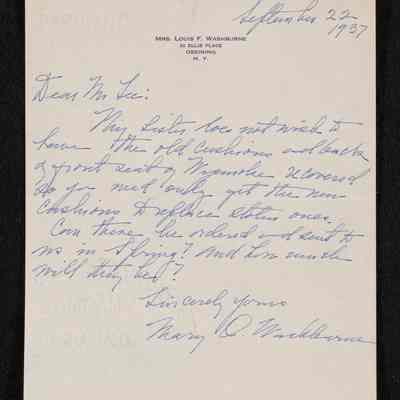 September 22
1937
MRS. LOUIS F. WASHBURNE
32 ELLIS PLACE
OSSINING
N. Y.
Dear Mr Lee:
My sister does not wish to
have the old cushions and back
of front seat of recovered
so you need only get the new
cushions to replace stolen ones.
Can these be ordered and sent to
us in Spring? and how much
will they be?
Sincerely yours
Mary O. Washburne